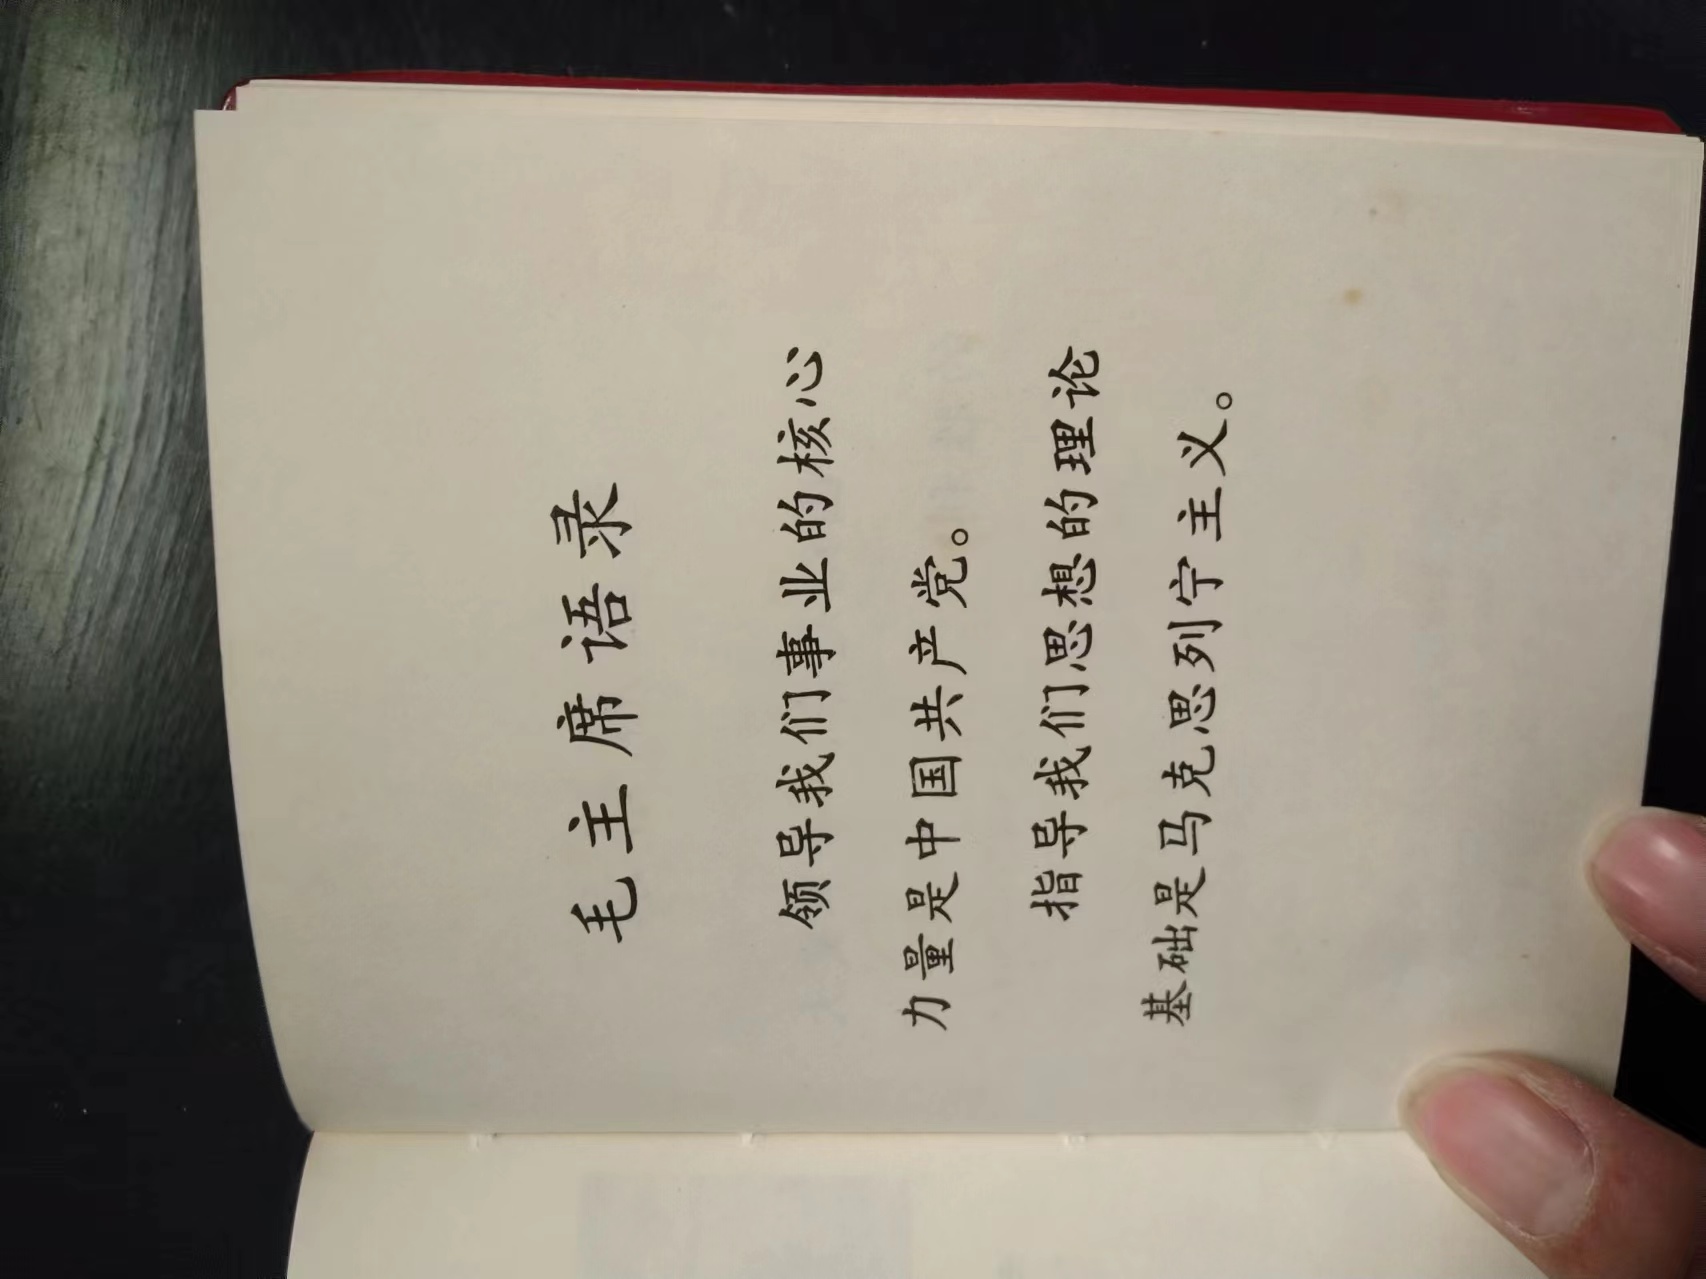 毛主席语录
领导我们事业的核心
力量是中国共产党。
指导我们思想的理论
基础是马克思列宁主义。